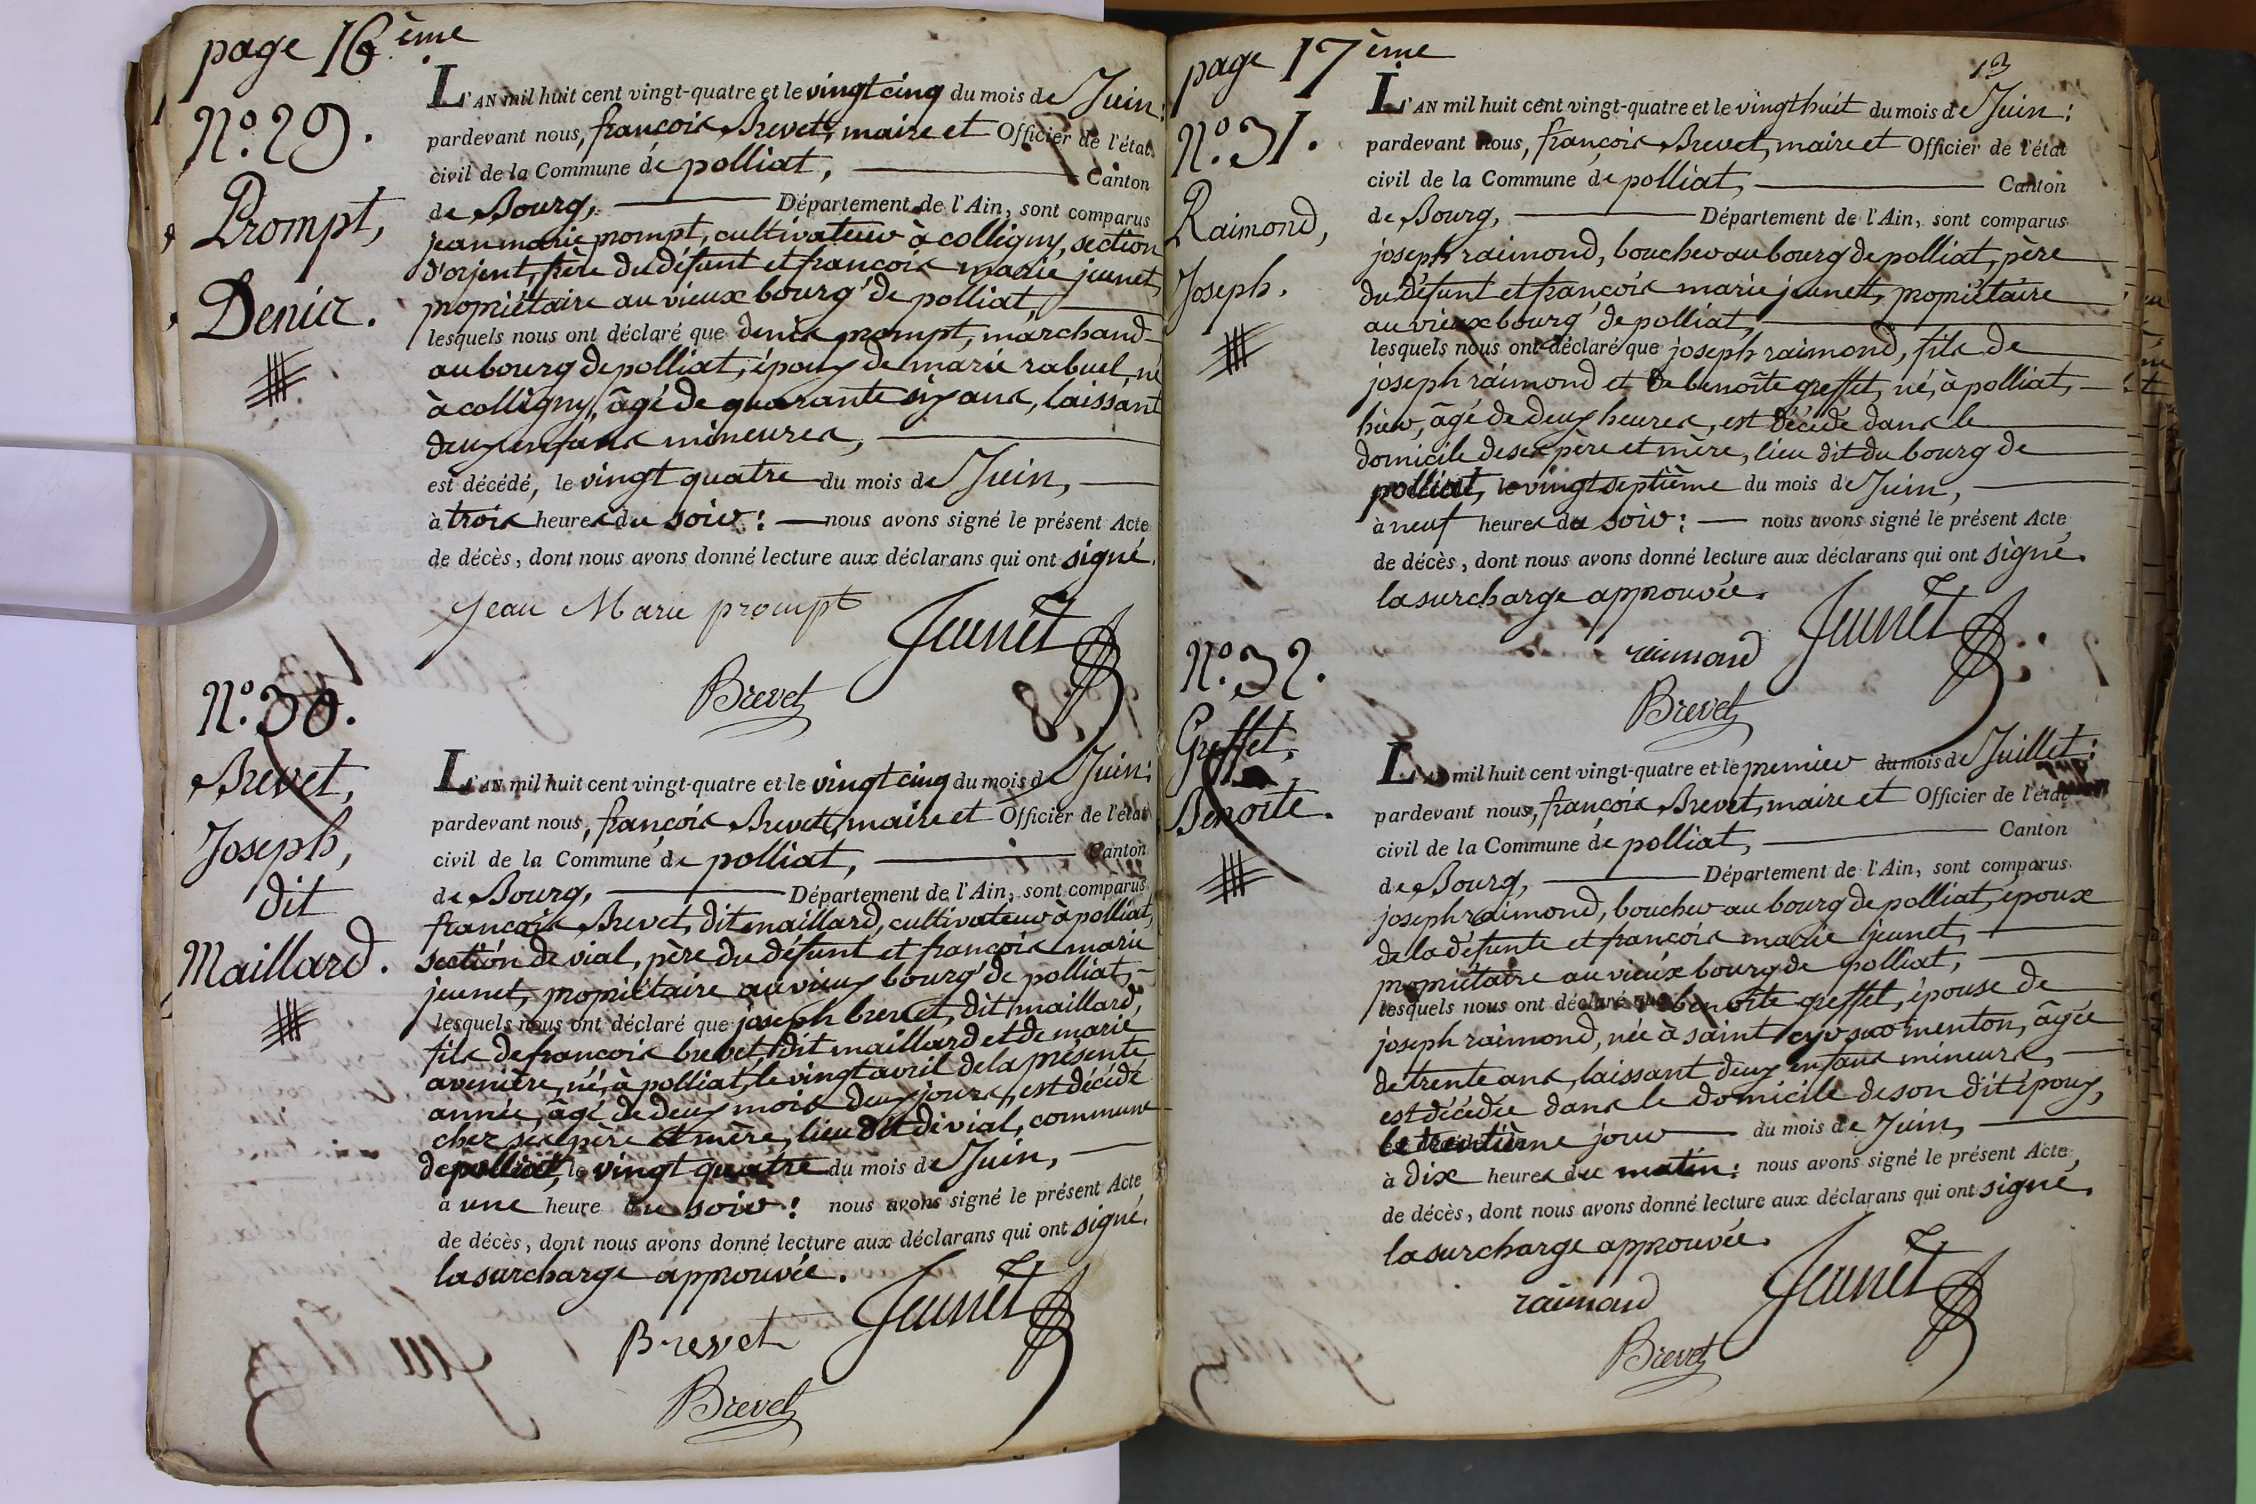 page 16ème
N.o 29.
Prompt,
Denis.
L'AN mil huit cent vingt-quatre et le vingt cinq du mois de Juin:
pardevant nous, françois Brevet, maire et Officier de l'état
civil de la Commune de polliat, Canton
de Bourg, Département de l'Ain, sont comparus
jean marie prompt, cultivateur à colligny, section
d'orjent, frère du défunt et françois marie jeunet,
propriétaire au vieux bourg de polliat,
lesquels nous ont déclaré que denis prompt, marchand
au bourg de polliat, époux de marie rabuel, né
à colligny, âgé de quarante six ans, laissant
deux enfans mineures,
est décédé, le vingt quatre du mois de Juin,
à trois heures du soir: nous avons signé le présent Acte
de décès, dont nous avons donné lecture aux déclarans qui ont signé.
Jean Marie prompt
Jeunet
Brevet
N.o 30.
Brevet,
Joseph,
dit
Maillard.
L'AN mil huit cent vingt-quatre et le vingt cinq du mois de Juin:
pardevant nous, françois Brevet, maire et Officier de l'état
civil de la Commune de polliat, Canton
de Bourg, Département de l'Ain, sont comparus
françois Brevet, dit maillard, cultivateur à polliat,
section de vial, père du défunt et françois marie
jeunet, propriétaire au vieux bourg de polliat,
lesquels nous ont déclaré que joseph brevet, dit maillard,
fils de françois brevet, dit maillard et de marie
avenière, né, à polliat, le vingt avril de la présente
année, âgé de deux mois deux jours, est décédé
chez ses père et mère, lieu dit de vial, commune
de polliat, le vingt quatre du mois de Juin,
à une heure du soir: nous avons signé le présent Acte
de décès, dont nous avons donné lecture aux déclarans qui ont signé.
la surcharge approuvée.
Jeunet
Brevet
Brevet
page 17ème
13
N.o 31.
Raimond,
Joseph.
L'AN mil huit cent vingt-quatre et le vingt huit du mois de Juin:
pardevant nous, françois Brevet, maire et Officier de l'état
civil de la Commune de polliat, Canton
de Bourg, Département de l'Ain, sont comparus
joseph raimond, boucher au bourg de polliat, père
du défunt et françois marie jeunet, propriétaire
au vieux bourg de polliat,
lesquels nous ont déclaré que joseph raimond, fils de
joseph raimond et de benoîte greffet, né, à polliat,
hier, âgé de deux heures, est décédé dans le
domicile de ses père et mère, lieu dit du bourg de
polliat, le vingt septième du mois de Juin,
à neuf heures du soir: nous avons signé le présent Acte
de décès, dont nous avons donné lecture aux déclarans qui ont signé.
la surcharge approuvée.
raimond
Jeunet
Brevet
N.o 32.
Greffet,
Benoite.
L'AN mil huit cent vingt-quatre et le premier du mois de Juillet:
pardevant nous, françois Brevet, maire et Officier de l'état
civil de la Commune de polliat, Canton
de Bourg, Département de l'Ain, sont comparus
joseph raimond, boucher au bourg de polliat, époux
de la défunte et françois marie jeunet,
propriétaire au vieux bourg de polliat,
lesquels nous ont déclaré que benoîte greffet, épouse de
joseph raimond, née à saint cyr sur menton, âgée
de trente ans, laissant deux enfans mineurs,
est décédée dans le domicile de son dit époux,
le trentième jour du mois de Juin,
à dix heures du matin: nous avons signé le présent Acte
de décès, dont nous avons donné lecture aux déclarans qui ont signé.
la surcharge approuvée.
raimond
Jeunet
Brevet